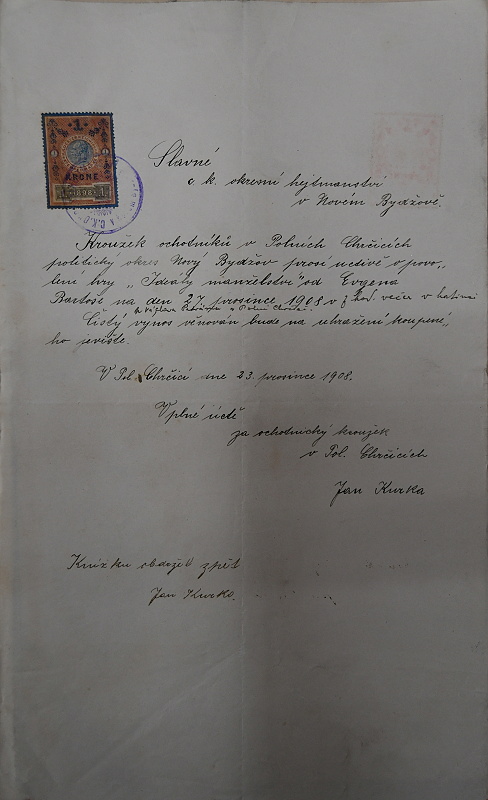 1
KRONE
1898
Slavné
c. k. okresní hejtmanství
v Novém Bydžově.
Kroužek ochotníků v Polních Chrčicích
politický okres Nový Bydžov prosí uctivě o povo„
lení hry „Idealy manželství" od Evgena
Bartoše na den 27. prosince 1908 v 7 hod. večer v hostinci
p. Václava v Poln. Chrčic.
Čistý výnos věnován bude na uhražení koupené„
ho jeviště.
V Pol. Chrčicí dne 23. prosince 1908.
V plné úctě
za ochotnický kroužek
v Pol. Chrčicích
Jan Kurka
Knížku obdržel zpět
Jan Kurka.